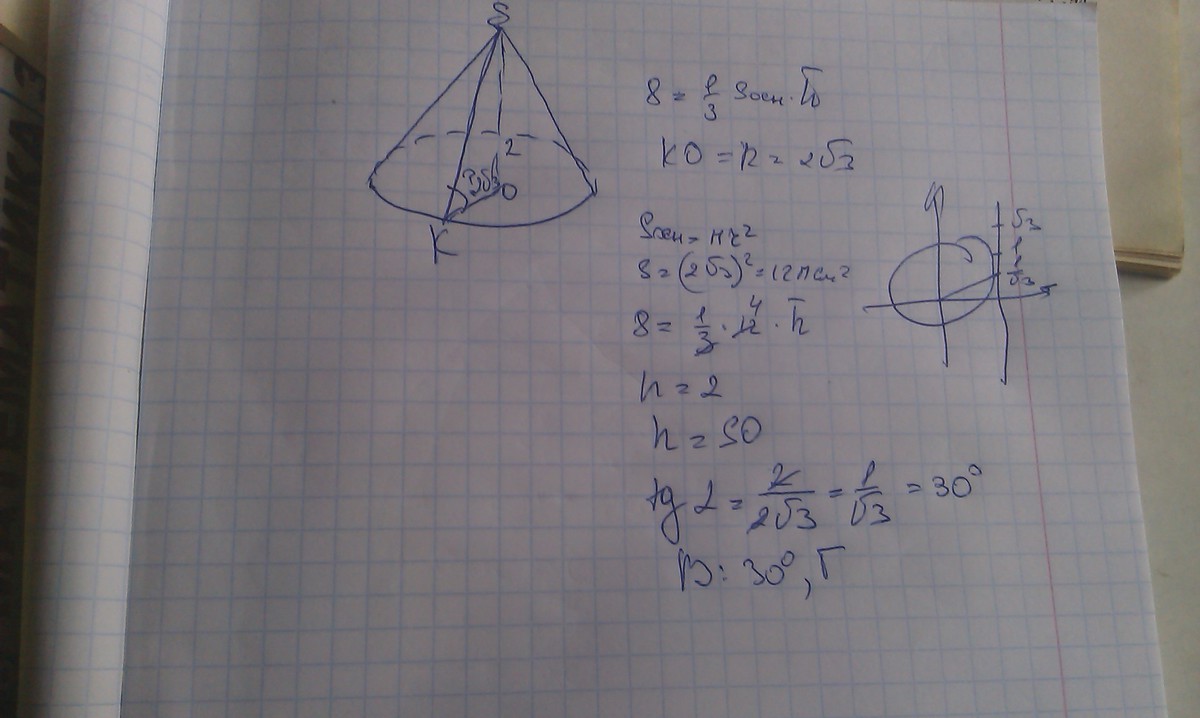 S
2
2√3
O
K
8 = 1/3 Sосн. · h
KO = R = 2√3
Sосн = πr²
S = (2√3)² = 12π см²
8 = 1/3 · 12 4 · h
h = 2
h = SO
tg α = 2/2√3 = 1/√3 = 30°
В: 30°, Г
√3
1
1/√3
МАТЕМАТИКА/З